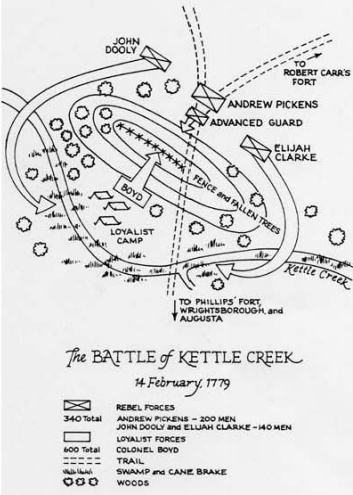 JOHN
DOOLY
TO
ROBERT CARR'S
FORT
ANDREW PICKENS
ADVANCED GUARD
ELIJAH
CLARKE
FENCE and FALLEN TREES
BOYD
LOYALIST
CAMP
Kettle Creek
TO PHILLIPS' FORT,
WRIGHTSBOROUGH, and
AUGUSTA
The BATTLE of KETTLE CREEK
14 February, 1779
REBEL FORCES
340 Total ANDREW PICKENS - 200 MEN
JOHN DOOLY and ELIJAH CLARKE - 140 MEN
LOYALIST FORCES
600 Total COLONEL BOYD
TRAIL
SWAMP and CANE BRAKE
WOODS